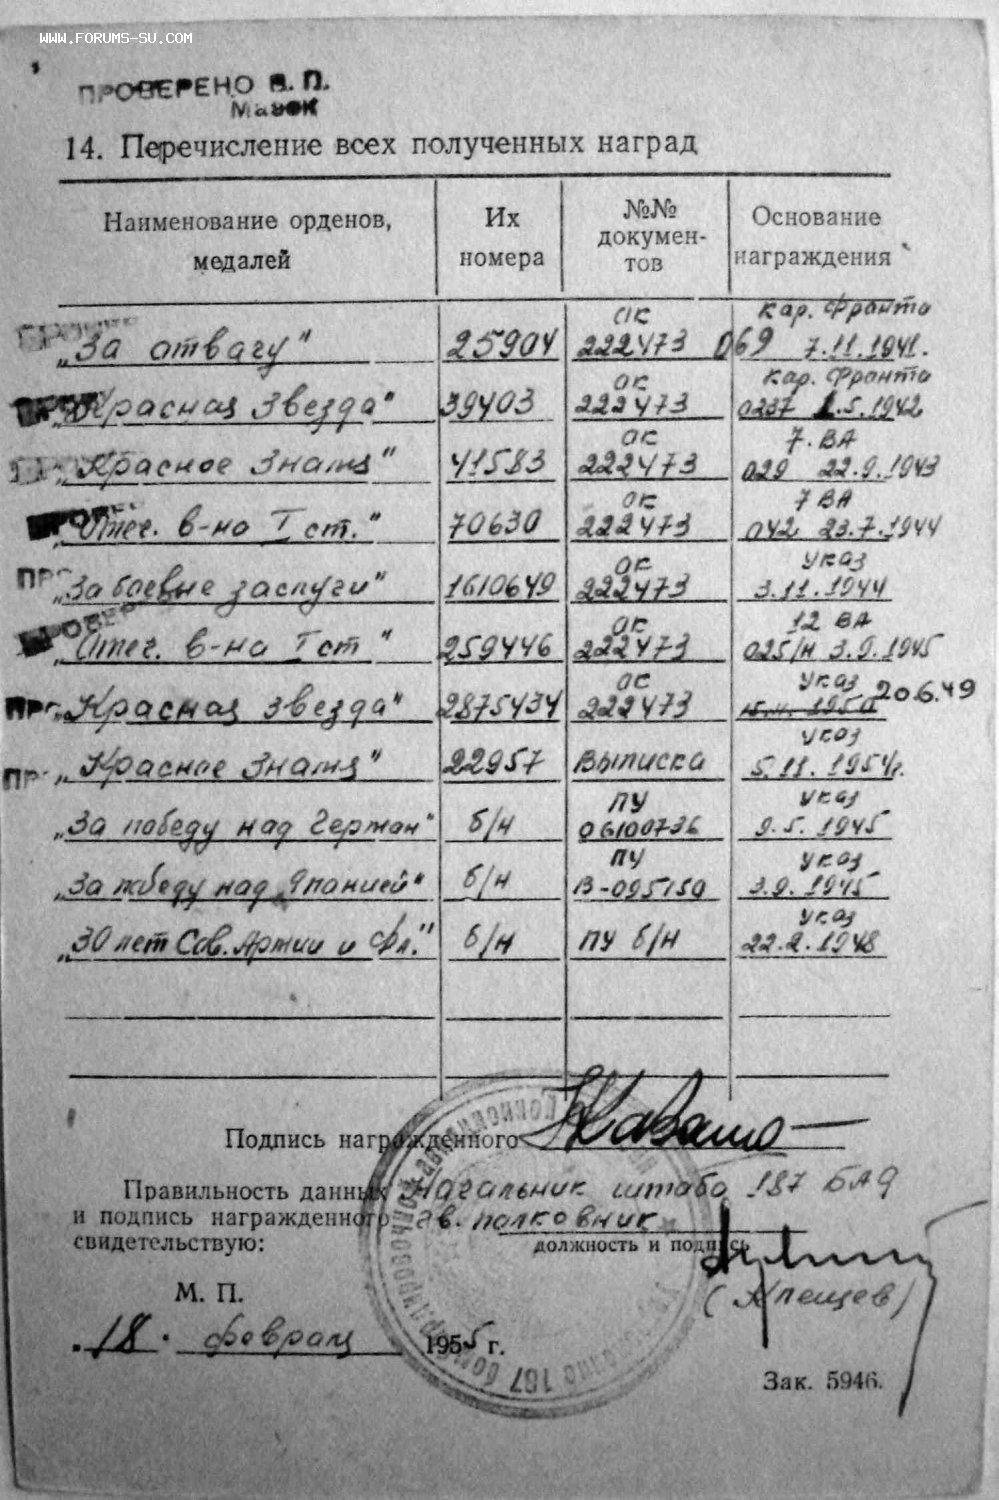 WWW.FORUMS-SU.COM
ПРОВЕРЕНО В. П.
14. Перечисление всех полученных наград
Наименование орденов, медалей
Их номера
№№ докумен-
тов
Основание награждения
„За отвагу" 25904 ОК 222473 Кар. Фронта 069 7.11.1941.
„Красная Звезда" 39403 ОК 222473 Кар. Фронта 0237 1.5.1942
„Красное Знамя" 41583 ОК 222473 7. ВА 029 22.9.1943
„Отеч. в-на I ст." 70630 ОК 222473 7 ВА 042 23.7.1944
„За боевые заслуги" 1610649 ОК 222473 указ 3.11.1944
„Отеч. в-на I ст" 259446 ОК 222473 12 ВА 025/н 3.9.1945
„Красная Звезда" 2875434 ОК 222473 указ 20.6.49
„Красное Знамя" 22957 Выписка указ 5.11.1954г.
„За победу над Герман" б/н ПУ 06100736 указ 9.5.1945
„За победу над Японией" б/н ПУ В-095150 указ 3.9.1945
„30 лет Сов. Армии и Фл." б/н ПУ б/н указ 22.2.1948
Подпись награжденного
Правильность данных Начальник штаба 187 БАД
и подпись награжденного гв. полковник
свидетельствую: должность и подпись
М. П.
18. февраля 1955 г.
Зак. 5946.